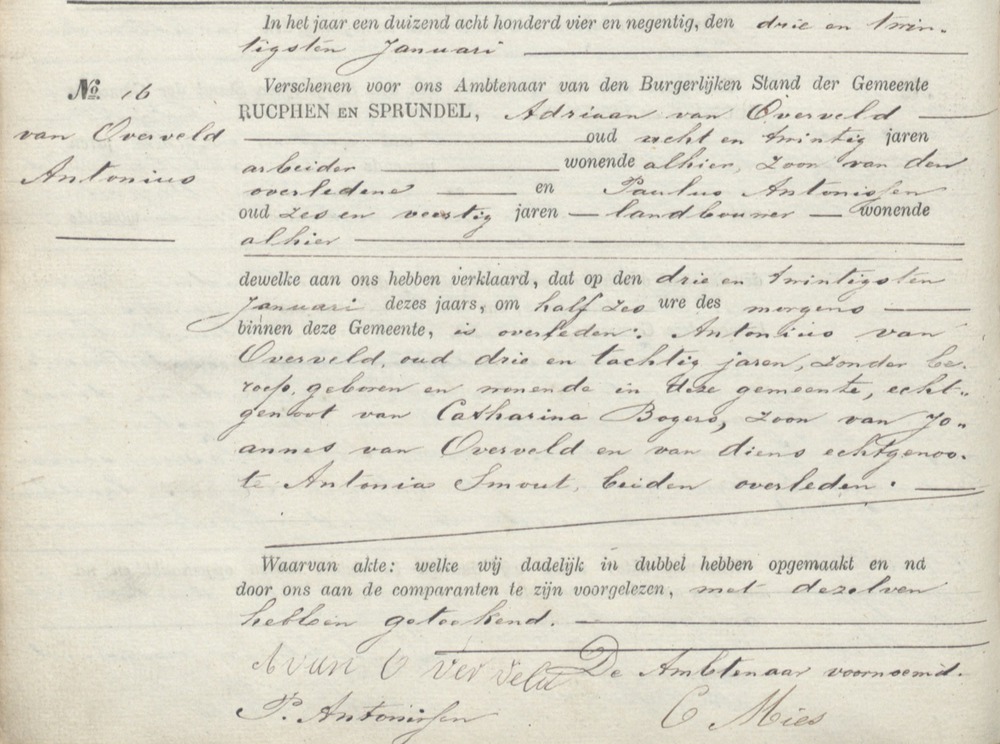 In het jaar een duizend acht honderd vier en negentig, den drie en twin-
tigsten Januari
No. 16
van Overveld
Antonius
Verschenen voor ons Ambtenaar van den Burgerlijken Stand der Gemeente
RUCPHEN EN SPRUNDEL, Adriaan van Overveld
oud acht en twintig jaren
arbeider wonende alhier, zoon van den
overledene en Paulus Antonissen
oud zes en veertig jaren landbouwer wonende
alhier
dewelke aan ons hebben verklaard, dat op den drie en twintigsten
Januari dezes jaars, om half zes ure des morgens
binnen deze Gemeente, is overleden: Antonius van
Overveld, oud drie en tachtig jaren, zonder be-
roep, geboren en wonende in deze gemeente, echt-
genoot van Catharina Bogers, zoon van Jo-
annes van Overveld en van diens echtgenoo-
te Antonia Smout, beiden overleden.
Waarvan akte: welke wij dadelijk in dubbel hebben opgemaakt en na
door ons aan de comparanten te zijn voorgelezen, met dezelven
hebben geteekend.
A van Overveld De Ambtenaar voornoemd.
P. Antonissen C Mies